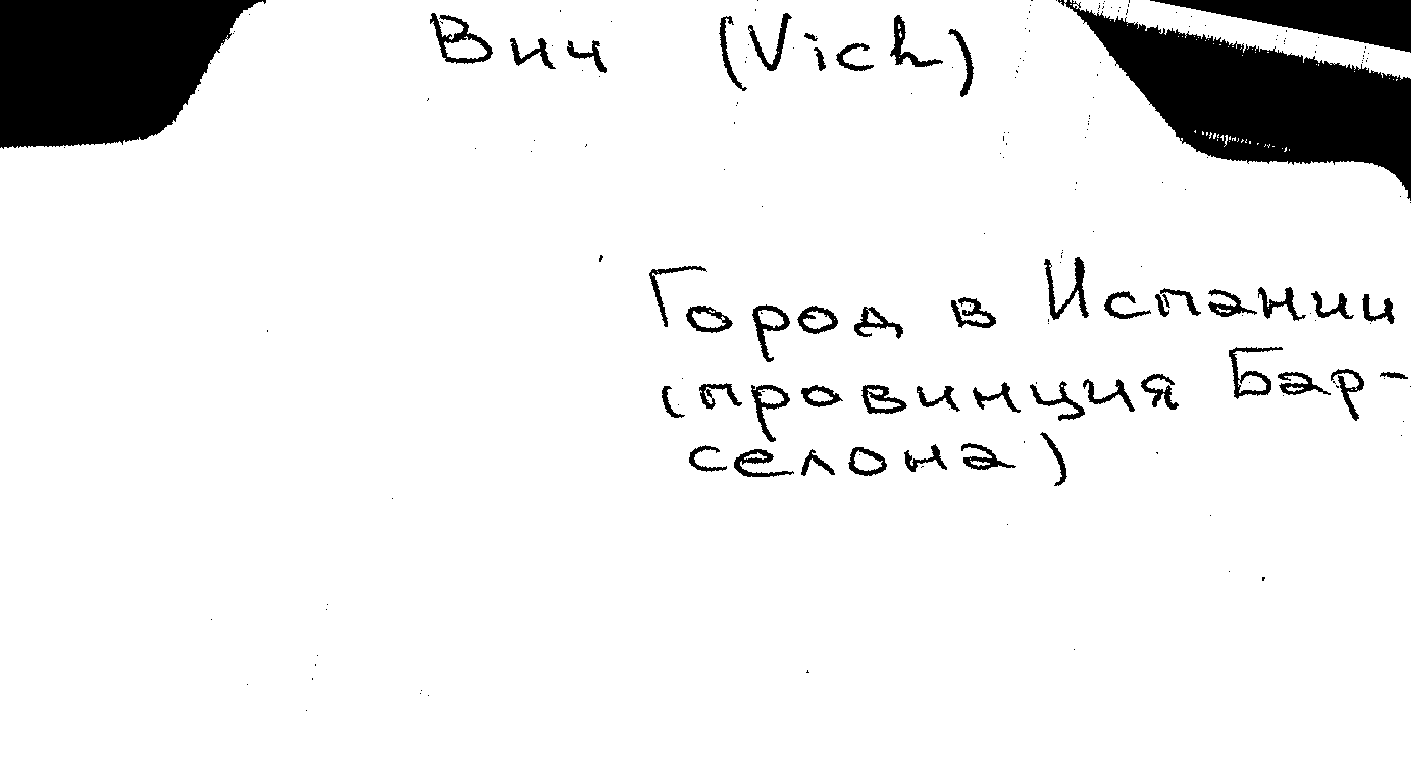 Вич (Vich)
Город в Испании
(провинция Бар-
селона)